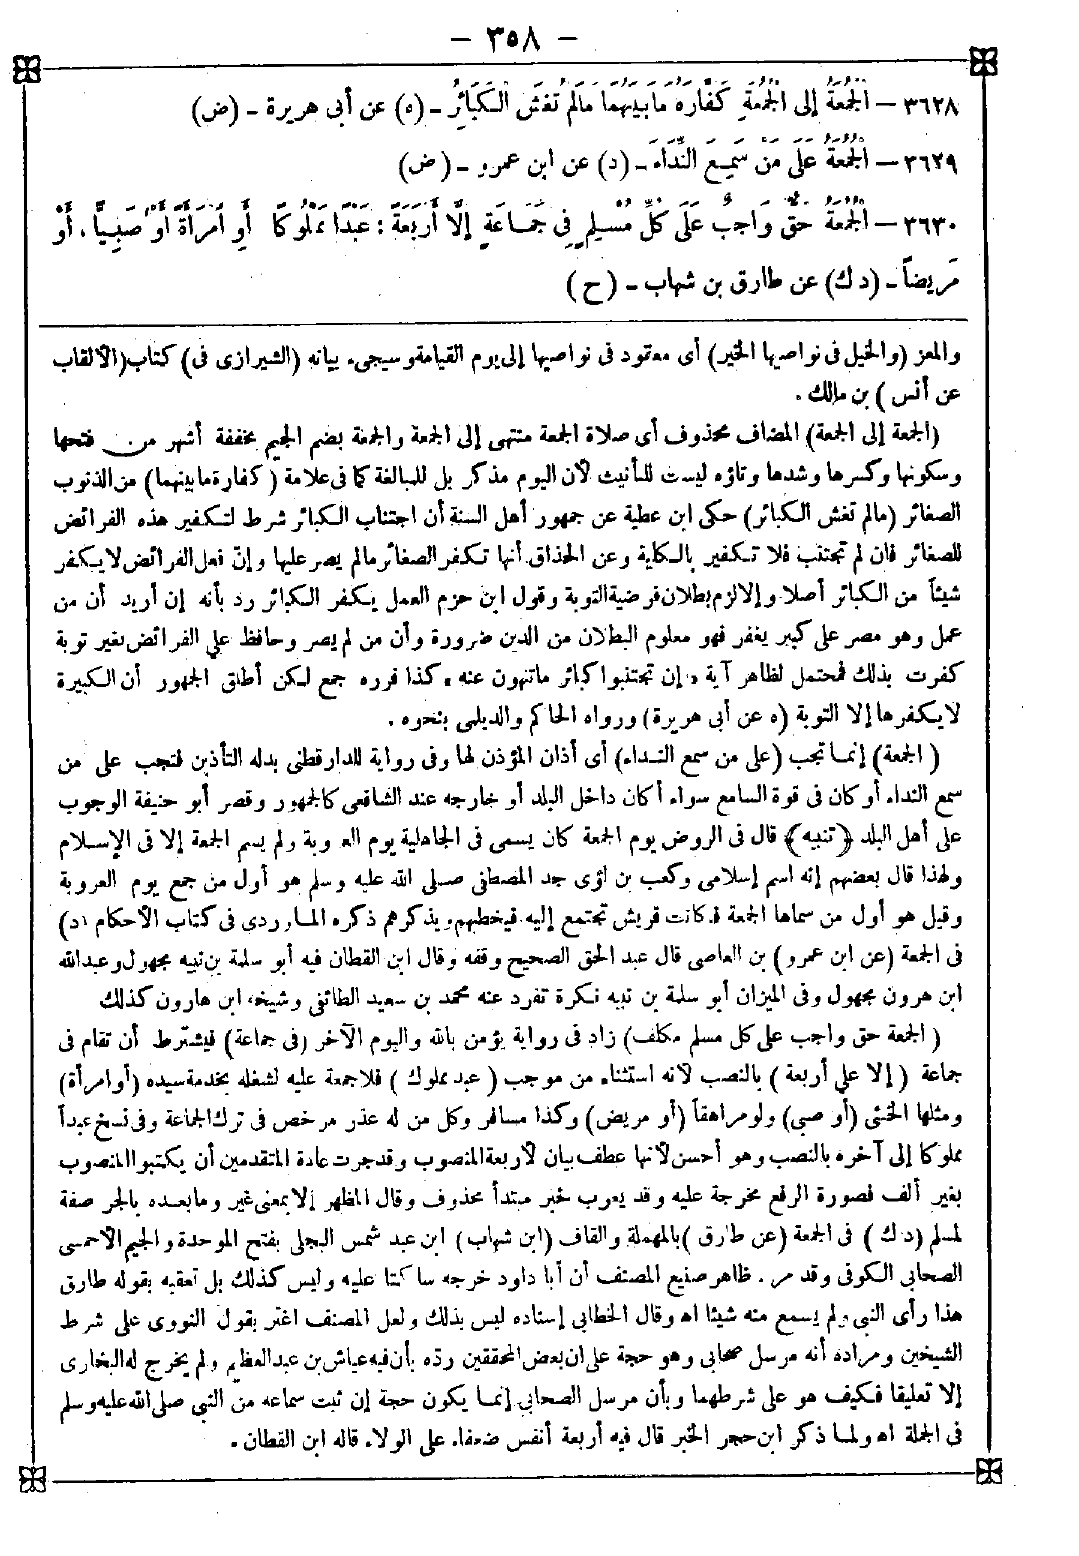 – ٣٥٨ –
٣٦٢٨ – الْجُمُعَةُ إِلَى الْجُمُعَةِ كَفَّارَةُ مَا بَيْنَهُمَا مَا لَمْ تُغْشَ الْكَبَائِرُ – (ه) عن أبى هريرة – (ض)
٣٦٢٩ – الْجُمُعَةُ عَلَى مَنْ سَمِعَ النِّدَاءَ – (د) عن ابن عمرو – (ض)
٣٦٣٠ – الْجُمُعَةُ حَقٌّ وَاجِبٌ عَلَى كُلِّ مُسْلِمٍ فِى جَمَاعَةٍ إِلَّا أَرْبَعَةً : عَبْدًا مَمْلُوكًا أَوِ امْرَأَةً أَوْ صَبِيًّا ، أَوْ
مَرِيضاً – (د ك) عن طارق بن شهاب – (ح)
والمعز (والخيل فى نواصيها الخير) أى معقود فى نواصيها إلى يوم القيامة وسيجىء بيانه (الشيرازى فى) كتاب (الألقاب
عن أنس) بن مالك .
(الجمعة إلى الجمعة) المضاف محذوف أى صلاة الجمعة منتهى إلى الجمعة والجمعة بضم الجيم مخففة أشهر من فتحها
وسكونها وكسرها وشدها وتاؤه ليست للتأنيث لأن اليوم مذكر بل للمبالغة كما فى علامة (كفارة ما بينهما) من الذنوب
الصغائر (مالم تغش الكبائر) حكى ابن عطية عن جمهور أهل السنة أن اجتناب الكبائر شرط لتكفير هذه الفرائض
للصغائر فان لم تجتنب فلا تكفير بالكلية وعن الحذاق أنها تكفر الصغائر مالم يصر عليها وإنّ فعل الفرائض لا يكفر
شيئاً من الكبائر أصلا وإلا لزم بطلان فرضية التوبة وقول ابن حزم العمل يكفر الكبائر رد بأنه إن أريد أن من
عمل وهو مصر على كبير يغفر فهو معلوم البطلان من الدين ضرورة وأن من لم يصر وحافظ على الفرائض بغير توبة
كفرت بذلك فمحتمل لظاهر آية « إن تجتنبوا كبائر ما تنهون عنه » كذا قرره جمع لكن أطلق الجمهور أن الكبيرة
لا يكفرها إلا التوبة (ه عن أبى هريرة) ورواه الحاكم والديلمى بنحوه .
(الجمعة) إنما تجب (على من سمع النداء) أى أذان المؤذن لها وفى رواية للدارقطنى بدله التأذين فتجب على من
سمع النداء أو كان فى قوة السامع سواء أكان داخل البلد أو خارجه عند الشافعى كالجمهور وقصر أبو حنيفة الوجوب
على أهل البلد ﴿تنبيه﴾ قال فى الروض يوم الجمعة كان يسمى فى الجاهلية يوم العروبة ولم يسم الجمعة إلا فى الإسلام
ولهذا قال بعضهم إنه اسم إسلامى وكعب بن لؤى جد المصطفى صلى الله عليه وسلم هو أول من جمع يوم العروبة
وقيل هو أول من سماها الجمعة فكانت قريش تجتمع إليه فيخطبهم ويذكرهم ذكره الماوردى فى كتاب الأحكام (د)
فى الجمعة (عن ابن عمرو) بن العاصى قال عبد الحق الصحيح وقفه وقال ابن القطان فيه أبو سلمة بن نبيه مجهول وعبدالله
ابن هرون مجهول وفى الميزان أبو سلمة بن نبيه نكرة تفرد عنه محمد بن سعيد الطائفى وشيخه ابن هارون كذلك
(الجمعة حق واجب على كل مسلم مكلف) زاد فى رواية يؤمن بالله واليوم الآخر (فى جماعة) فيشترط أن تقام فى
جماعة (إلا على أربعة) بالنصب لأنه استثناء من موجب (عبد مملوك) فلا جمعة عليه لشغله بخدمة سيده (أو امرأة)
ومثلها الخنثى (أو صبى) ولو مراهقاً (أو مريض) وكذا مسافر وكل من له عذر مرخص فى ترك الجماعة وفى نسخ عبداً
مملوكا إلى آخره بالنصب وهو أحسن لأنها عطف بيان لأربعة المنصوب وقد جرت عادة المتقدمين أن يكتبوا المنصوب
بغير ألف فصورة الرفع مخرجة عليه وقد يعرب خبر مبتدأ محذوف وقال المظهر إلا بمعنى غير وما بعده بالجر صفة
لمسلم (د ك) فى الجمعة (عن طارق) بالمهملة والقاف (ابن شهاب) ابن عبد شمس البجلى بفتح الموحدة والجيم الأحمسى
الصحابى الكوفى وقد مر . ظاهر صنيع المصنف أن أبا داود خرجه ساكتا عليه وليس كذلك بل تعقبه بقوله طارق
هذا رأى النبى ولم يسمع منه شيئا اه وقال الخطابى إسناده ليس بذلك ولعل المصنف اغتر بقول النووى على شرط
الشيخين ومراده أنه مرسل صحابى وهو حجة على ان بعض المحققين ردّه بأن فيه عياش بن عبدالعظيم ولم يخرج له البخارى
إلا تعليقا فكيف هو على شرطهما وبأن مرسل الصحابى إنما يكون حجة إن ثبت سماعه من النبى صلى الله عليه وسلم
فى الجملة اه ولما ذكر ابن حجر الخبر قال فيه أربعة أنفس ضعفاء على الولاء قاله ابن القطان .